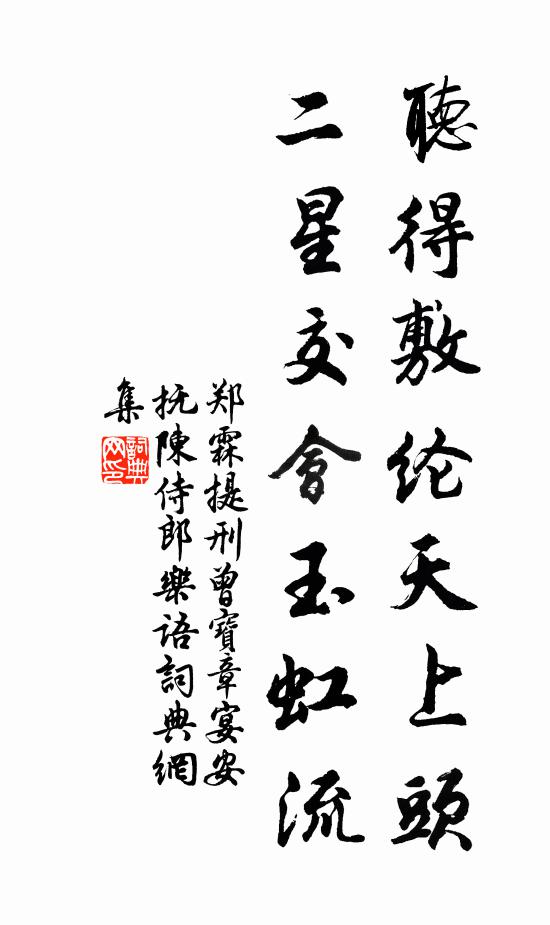 聽得敷纶天上頭
二星交會玉虹流
郑霖提刑曾寶章宴安
抚陳侍郎樂语詞典網
集
詞典網印